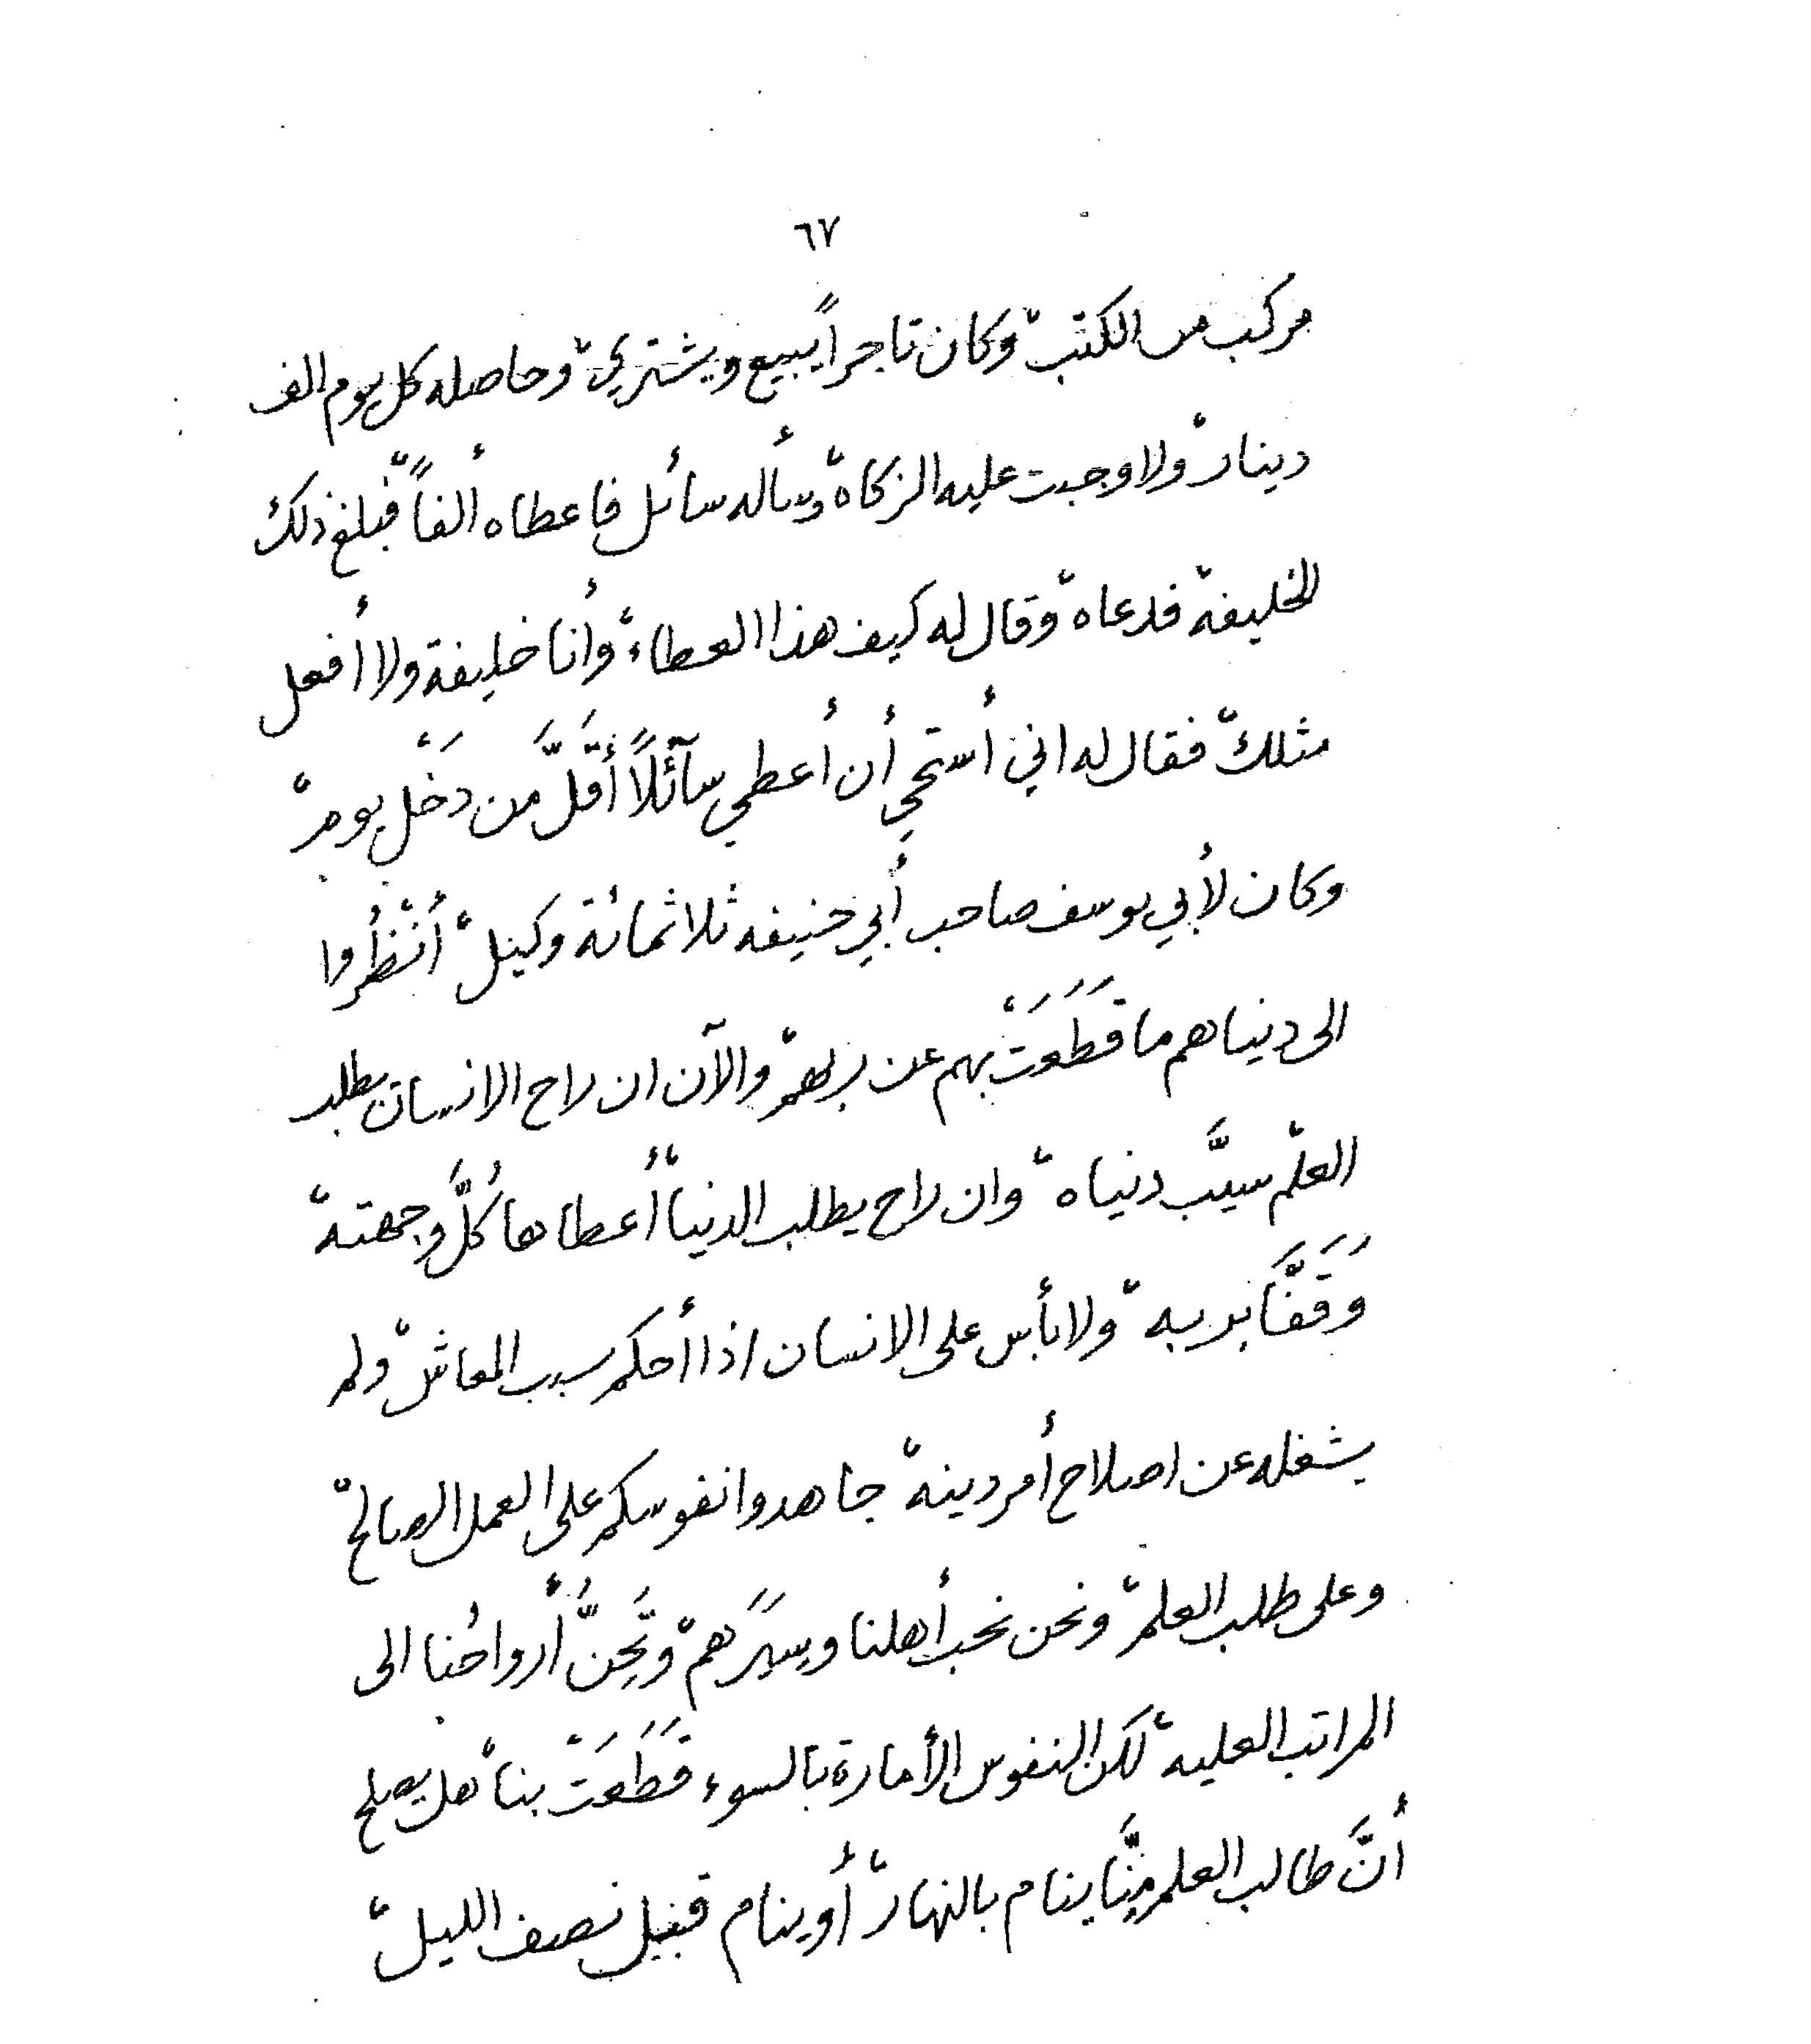 ٦٧
مركب من الكتب، وكان تاجراً يبيع ويشتري، وحاصله كل يوم الف
دينار، ولا وجبت عليه الزكاة، وسأله سائل فاعطاه ألفاً، فبلغ ذلك
الخليفة، فدعاه، وقال له كيف هذا العطاء، وأنا خليفة ولا أفعل
مثلك، فقال له اني أستحي أن أعطي سآئلاً أقَلَّ من دَخْل يوم،
وكان لأبي يوسف صاحب أبي حنيفه ثلاثمائة وكيل، أنْظُروا
الى دنياهم ما قَطَعَتْ بهم عن ربهم، والآن ان راح الانسان يطلب
العلم، سيَّب دنياه، وان راح يطلب الدنيا، أعطاها كُلَّ وجهته،
وَقَفَّا بربه، ولا بأس على الانسان اذا أحكم سبب المعاش، ولم
يشغله عن اصلاح أمر دينه، جاهدوا نفوسكم على العمل الصالح،
وعلى طلب العلم، ونحن نحب أهلنا وسِيَرَهم، وتَحِنُّ أرواحُنا الى
المراتب العليه، لكن النفوس الأمارة بالسوء قَطَعَتْ بنا، هل يصلح
أنَّ طالب العلم مِنَّا ينام بالنهار، أو ينام قبيل نصف الليل،